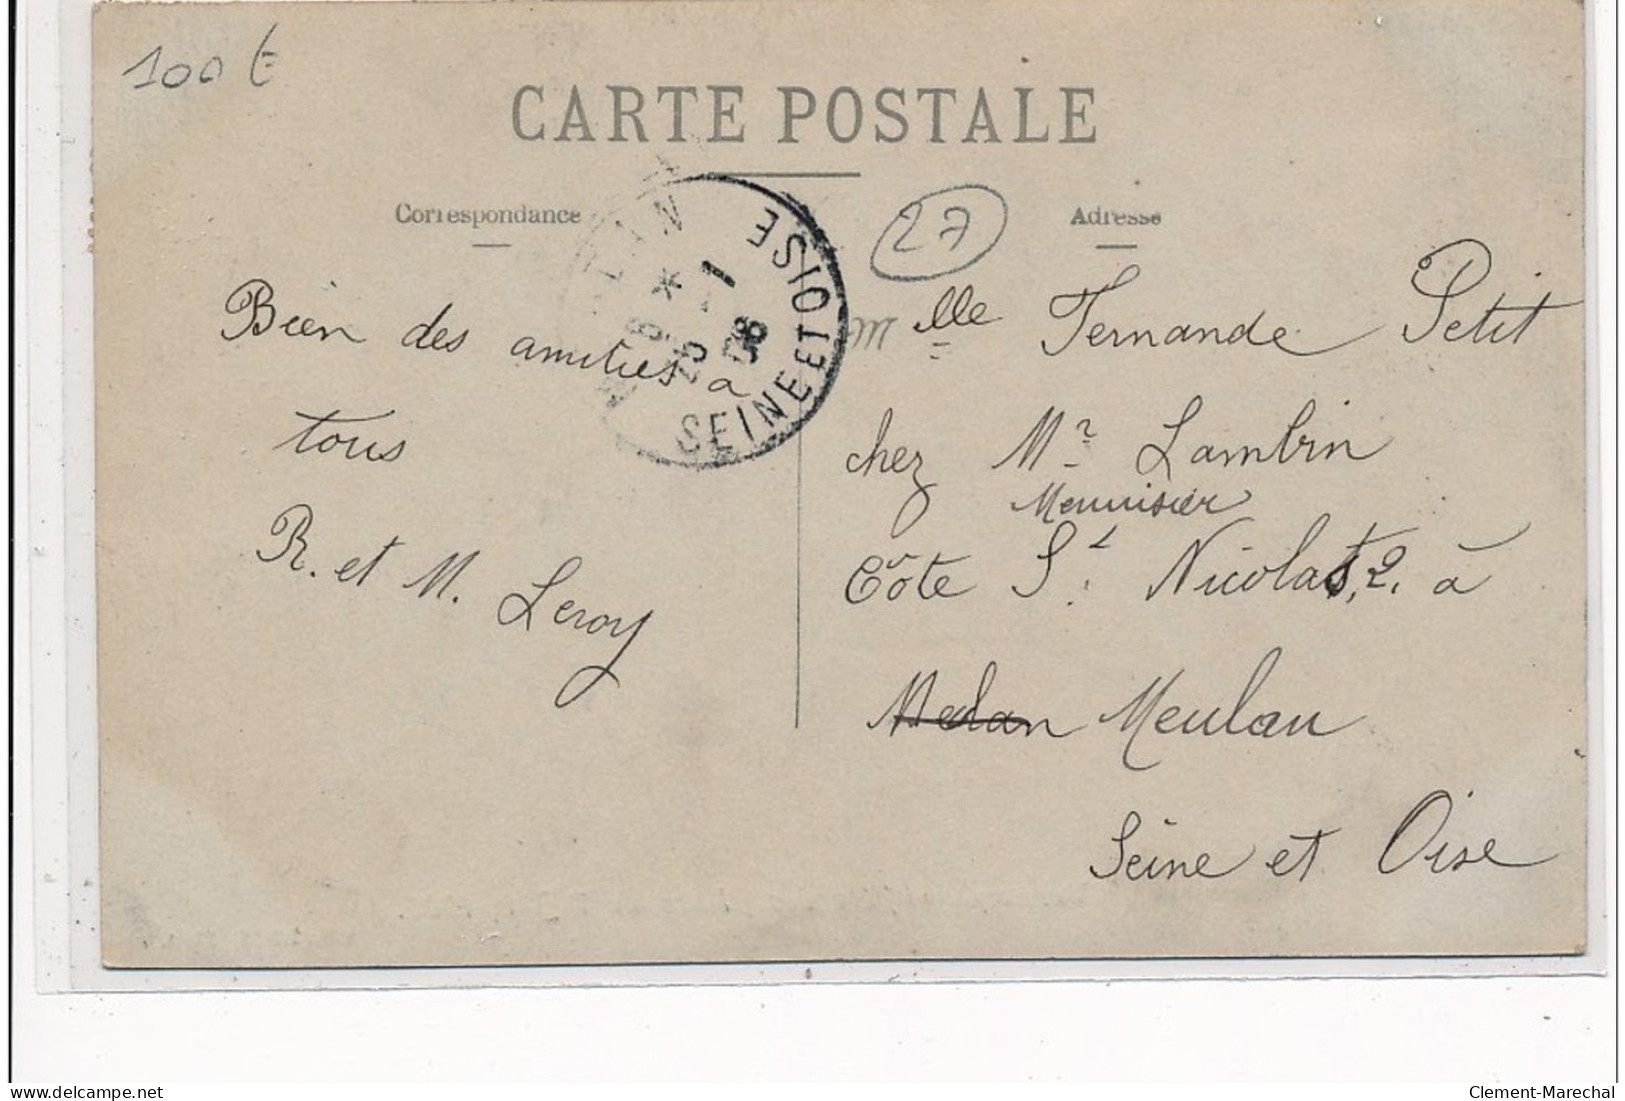 100 €
CARTE POSTALE
Correspondance
Adresse
27
Bien des amitiés à
tous
R. et M. Leroy
SEINE ET OISE
25 -1
08
Mlle Fernande Petit
chez Mr Lambin
Menuisier
Côte St Nicolas, 2, à
Medan Meulan
Seine et Oise
delcampe.net
Clement-Marechal